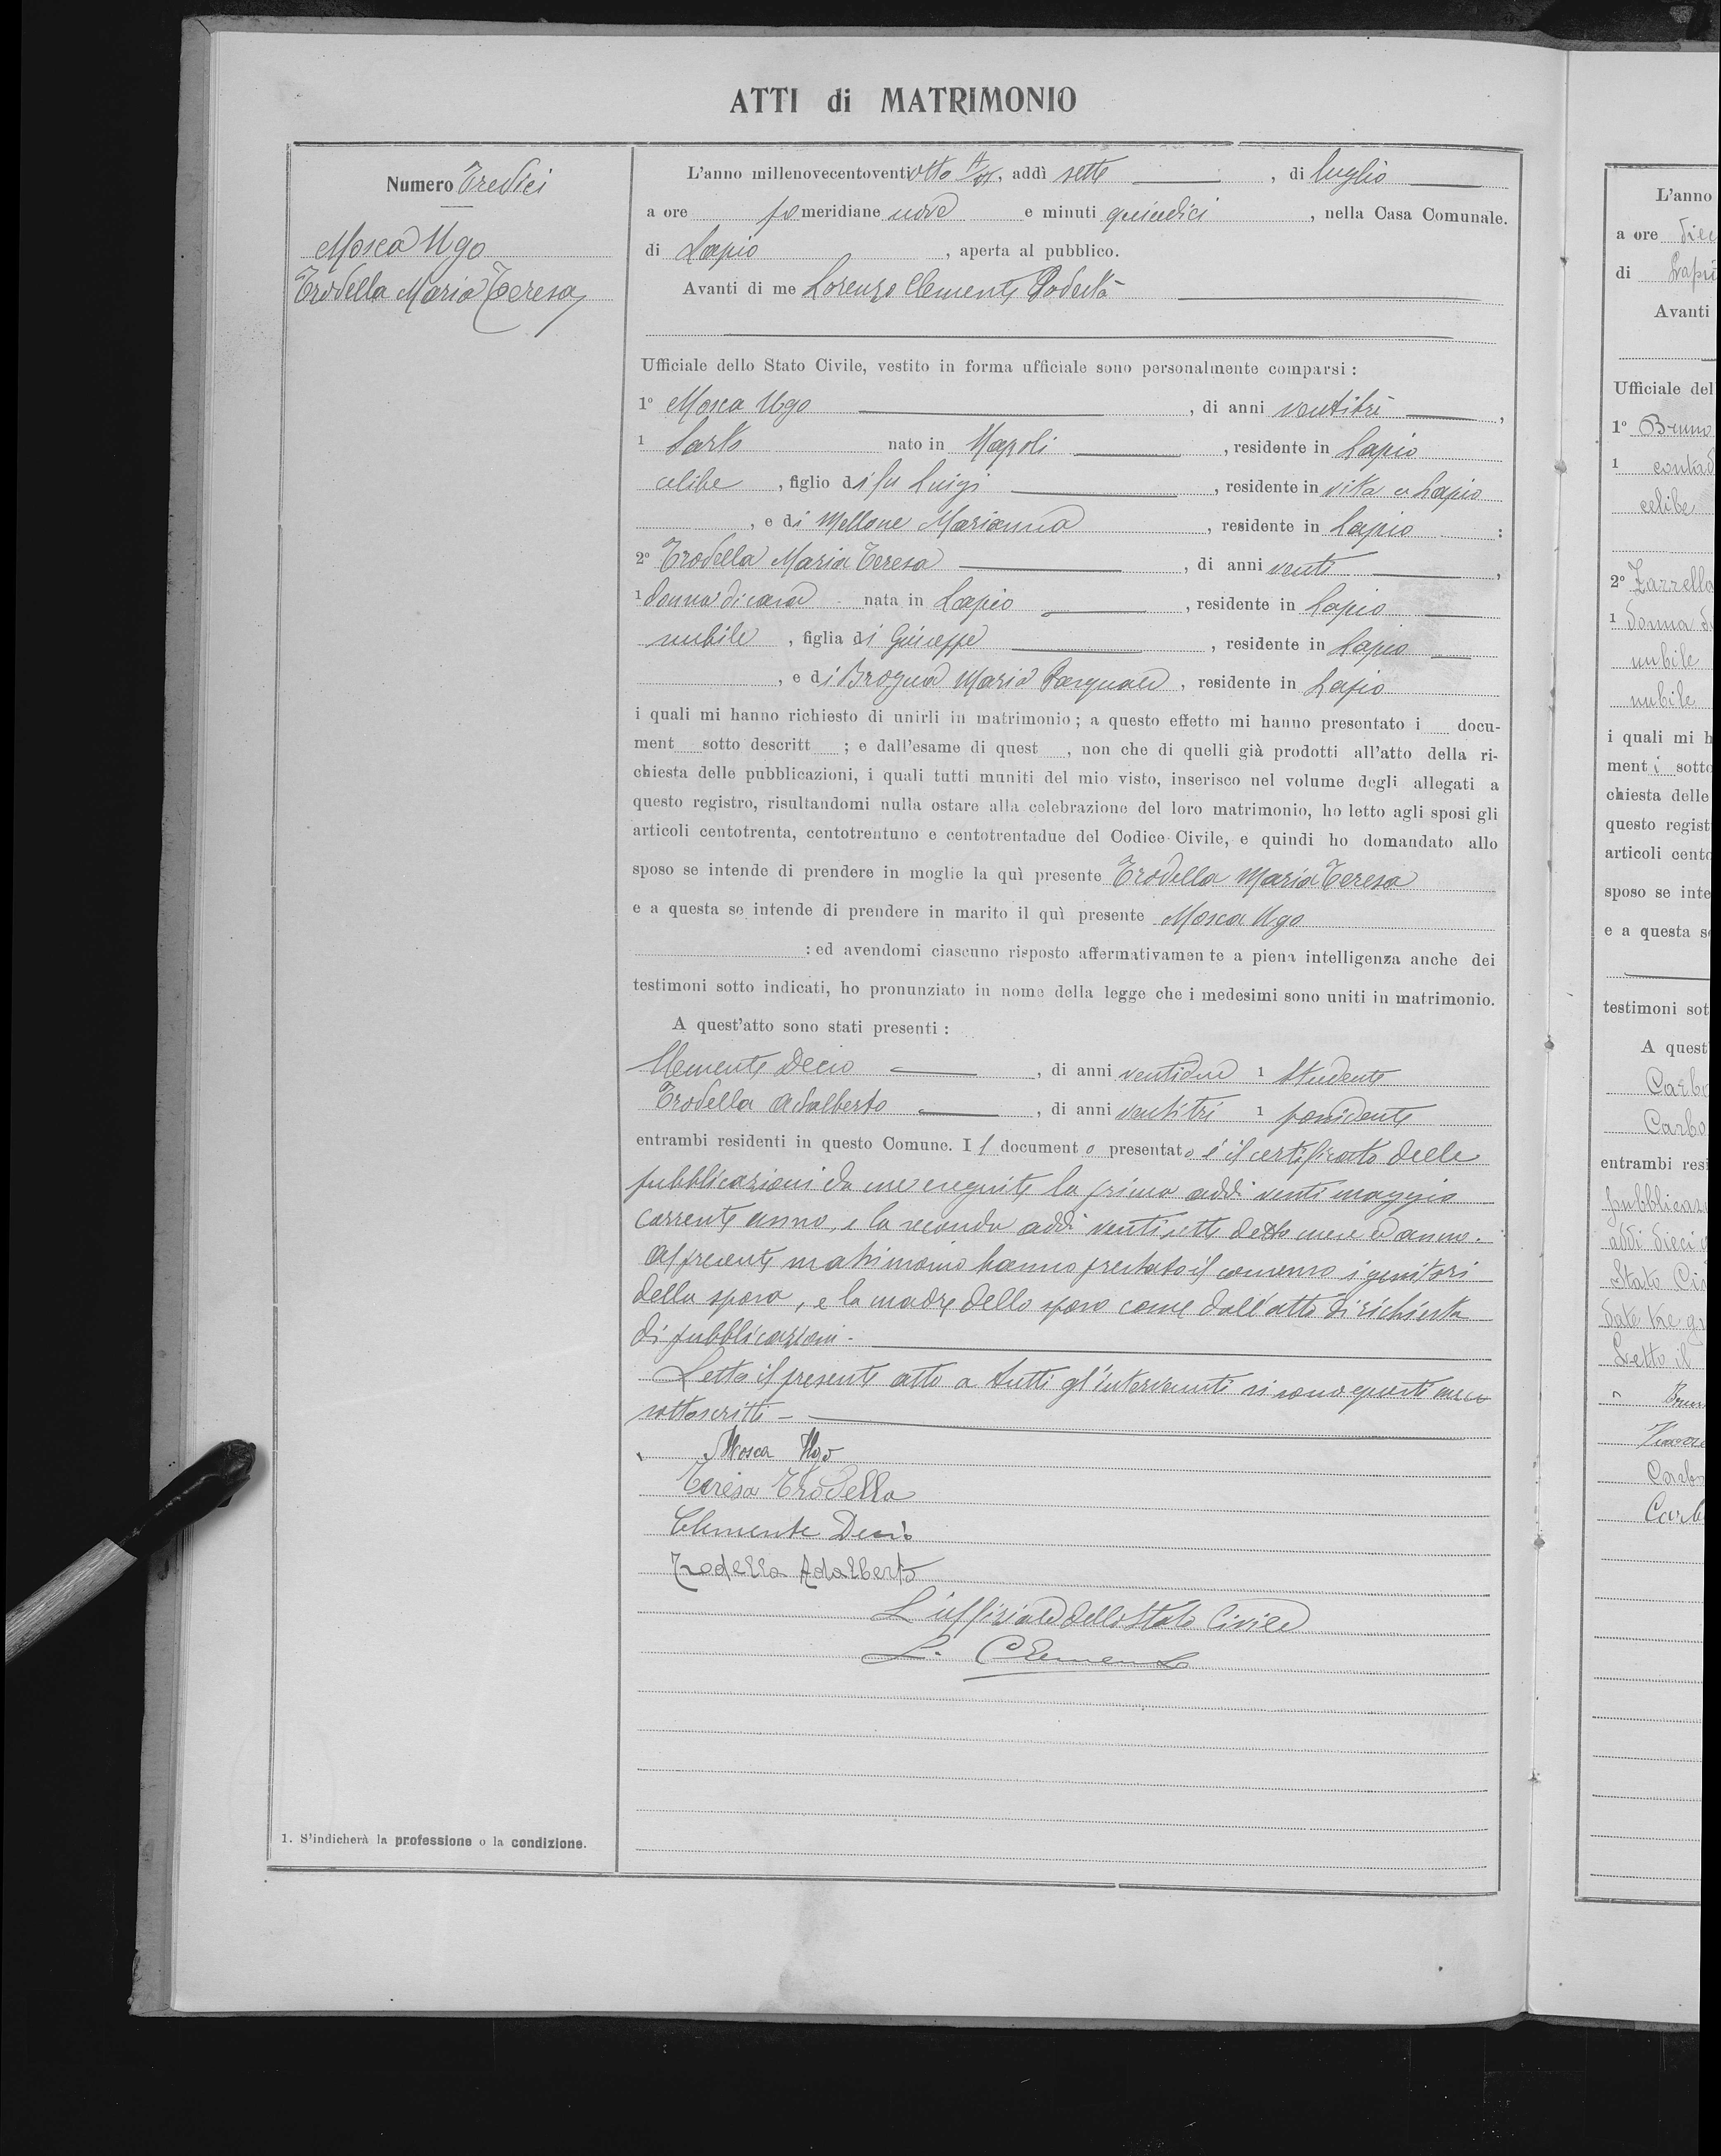 ATTI di MATRIMONIO
Numero Tredici
Mosca Ugo
Trodella Maria Teresa
L'anno millenovecentoventiotto, addì sette, di luglio
a ore pomeridiane nove e minuti quindici, nella Casa Comunale.
di Lapio, aperta al pubblico.
Avanti di me Lorenzo Clemente Podestà
Ufficiale dello Stato Civile, vestito in forma ufficiale sono personalmente comparsi :
1° Mosca Ugo, di anni ventitrè,
1 Sarto nato in Napoli, residente in Lapio
celibe, figlio di fu Luigi, residente in vita a Lapio
, e di Mellone Marianna, residente in Lapio :
2° Trodella Maria Teresa, di anni venti,
1 donna di casa nata in Lapio, residente in Lapio
nubile, figlia di Giuseppe, residente in Lapio
, e di Brogna Maria Pasquale, residente in Lapio
i quali mi hanno richiesto di unirli in matrimonio ; a questo effetto mi hanno presentato i docu-
ment sotto descritt ; e dall'esame di quest , non che di quelli già prodotti all'atto della ri-
chiesta delle pubblicazioni, i quali tutti muniti del mio visto, inserisco nel volume degli allegati a
questo registro, risultandomi nulla ostare alla celebrazione del loro matrimonio, ho letto agli sposi gli
articoli centotrenta, centotrentuno e centotrentadue del Codice Civile, e quindi ho domandato allo
sposo se intende di prendere in moglie la quì presente Trodella Maria Teresa
e a questa se intende di prendere in marito il quì presente Mosca Ugo
: ed avendomi ciascuno risposto affermativamen te a piena intelligenza anche dei
testimoni sotto indicati, ho pronunziato in nome della legge che i medesimi sono uniti in matrimonio.
A quest'atto sono stati presenti :
Clemente Decio, di anni ventidue 1 Studente
Trodella Adalberto, di anni ventitrè 1 possidente
entrambi residenti in questo Comune. Il documento presentato è il certificato delle
pubblicazioni da me eseguite la prima addì venti maggio
corrente anno, e la seconda addì ventisette detto mese ed anno.
Al presente matrimonio hanno prestato il consenso i genitori
della sposa, e la madre dello sposo come dall'atto di richiesta
di pubblicazioni.
Letto il presente atto a tutti gl'intervenuti si sono questi meco
sottoscritti
Mosca Ugo
Teresa Trodella
Clemente Decio
Trodella Adalberto
L'uffiziale dello Stato Civile
L. Clemente
1. S'indicherà la professione o la condizione.
L'anno
a ore diec
di Lapi
Avanti
Ufficiale del
1° Bruno
1 contad
celibe
2° Zarrella
1 donna d
nubile
nubile
i quali mi h
ment i sotto
chiesta delle
questo regist
articoli cento
sposo se inte
e a questa s
testimoni sot
A quest'
Carbo
Carbo
entrambi resi
pubblicaz
addì dieci
Stato Ci
Letto il